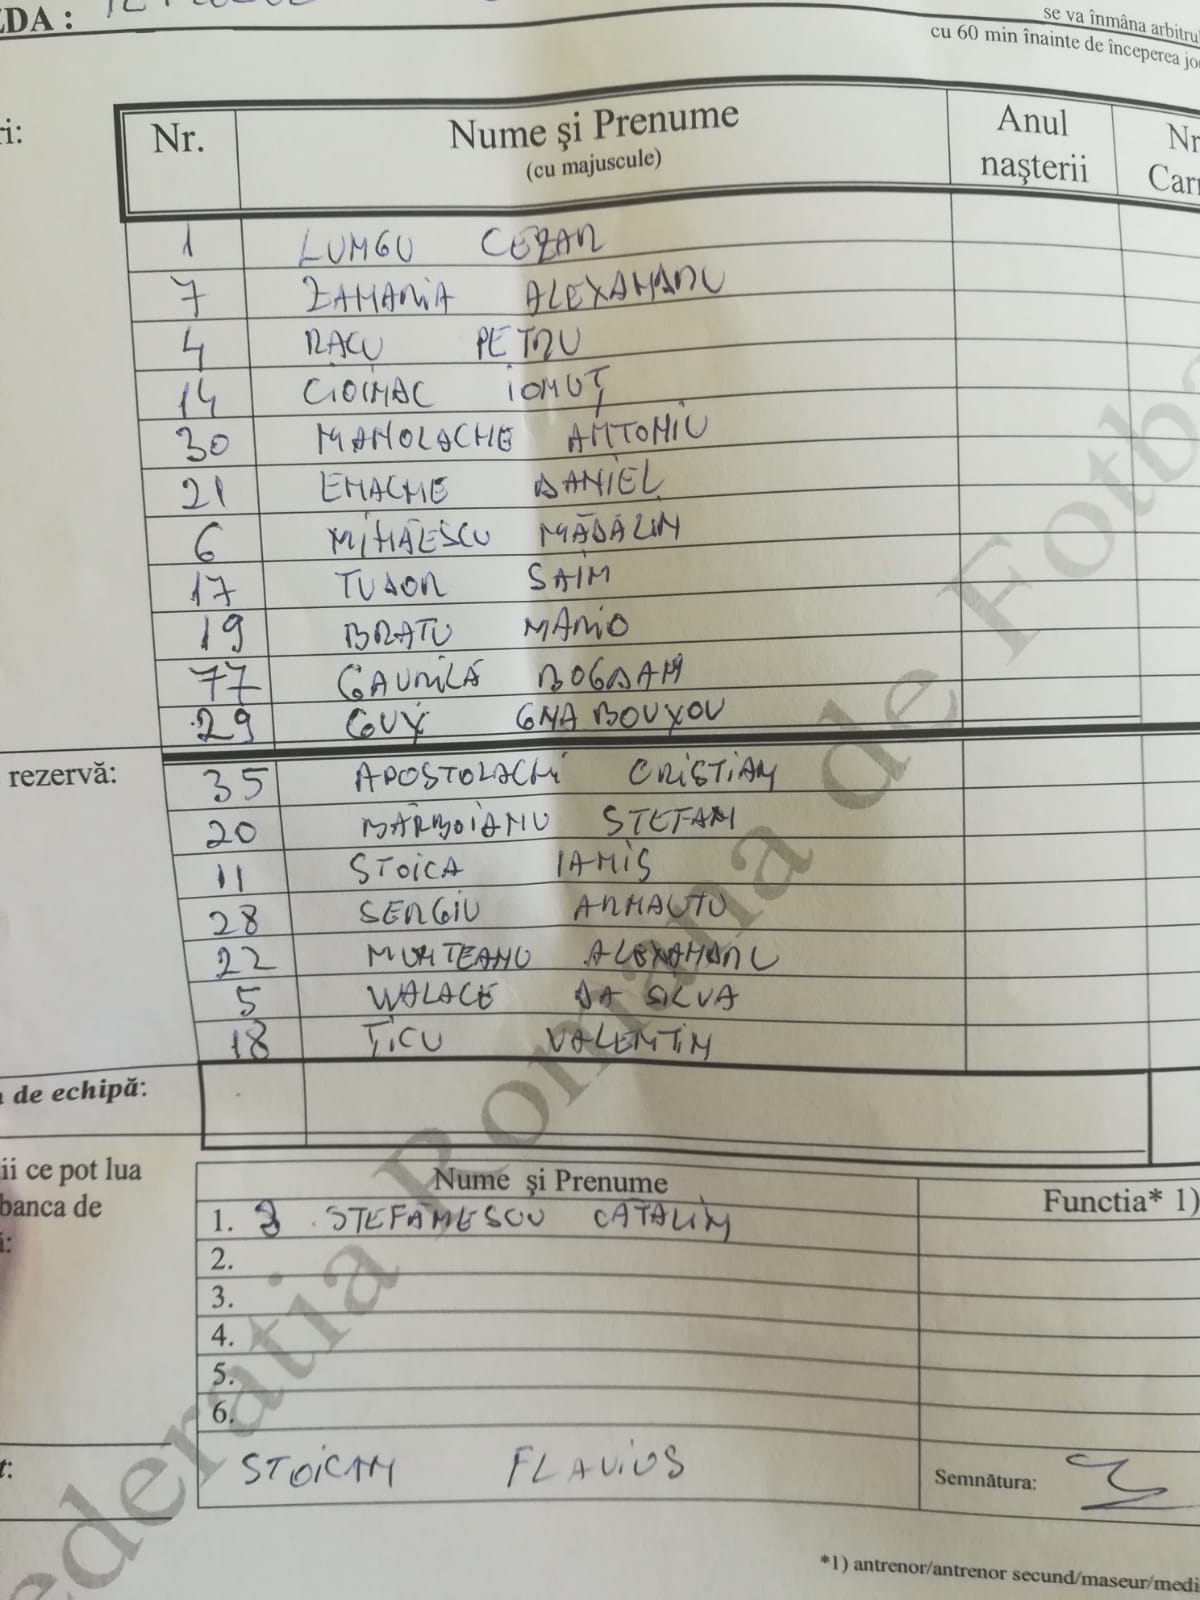 EDA :
se va înmâna arbitrul
cu 60 min înainte de începerea jo
ri:
Nr. Nume şi Prenume Anul Nr
(cu majuscule) naşterii Carn
1 LUNGU CEZAR
7 ZAMARIA ALEXANDRU
4 RACU PETRU
14 CIOINAC IONUȚ
30 MANOLACHE ANTONIU
21 ENACHE DANIEL
6 MIHĂESCU MĂDĂLIN
17 TUDOR SAIM
19 BRATU MARIO
77 GAVRILĂ BOGDAN
29 GUY GNABOUYOU
rezervă:
35 APOSTOLACHI CRISTIAN
20 BĂRBOIANU STEFAN
11 STOICA IANIS
28 SERGIU ARNAUTU
22 MUNTEANU ALEXANDRU
5 WALACE DA SILVA
18 ȚICU VALENTIN
de echipă:
ii ce pot lua
banca de
Nume şi Prenume Functia* 1)
1. 3 STEFANESCU CATALIN
2.
3.
4.
5.
6.
STOICAN FLAVIUS Semnătura:
*1) antrenor/antrenor secund/maseur/medi
ederatia Romana de Fotb